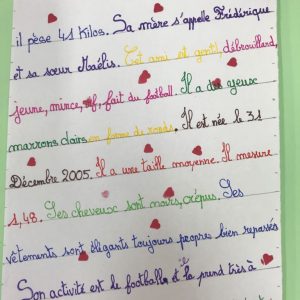 il pèse 41 Kilos. Sa mère s'appelle Frédérique
et sa sœur Maëlis. Cet ami est gentil, débrouillard,
jeune, mince, fait du football. Il a des yeux
marrons clairs en forme de ronds. Il est née le 31
Décembre 2005. Il a une taille moyenne. Il mesure
1,48. Ses cheveux sont noirs, crépus. Ses
vêtements sont élégants toujours propres bien repassés
Son activité est le football il la prend très à